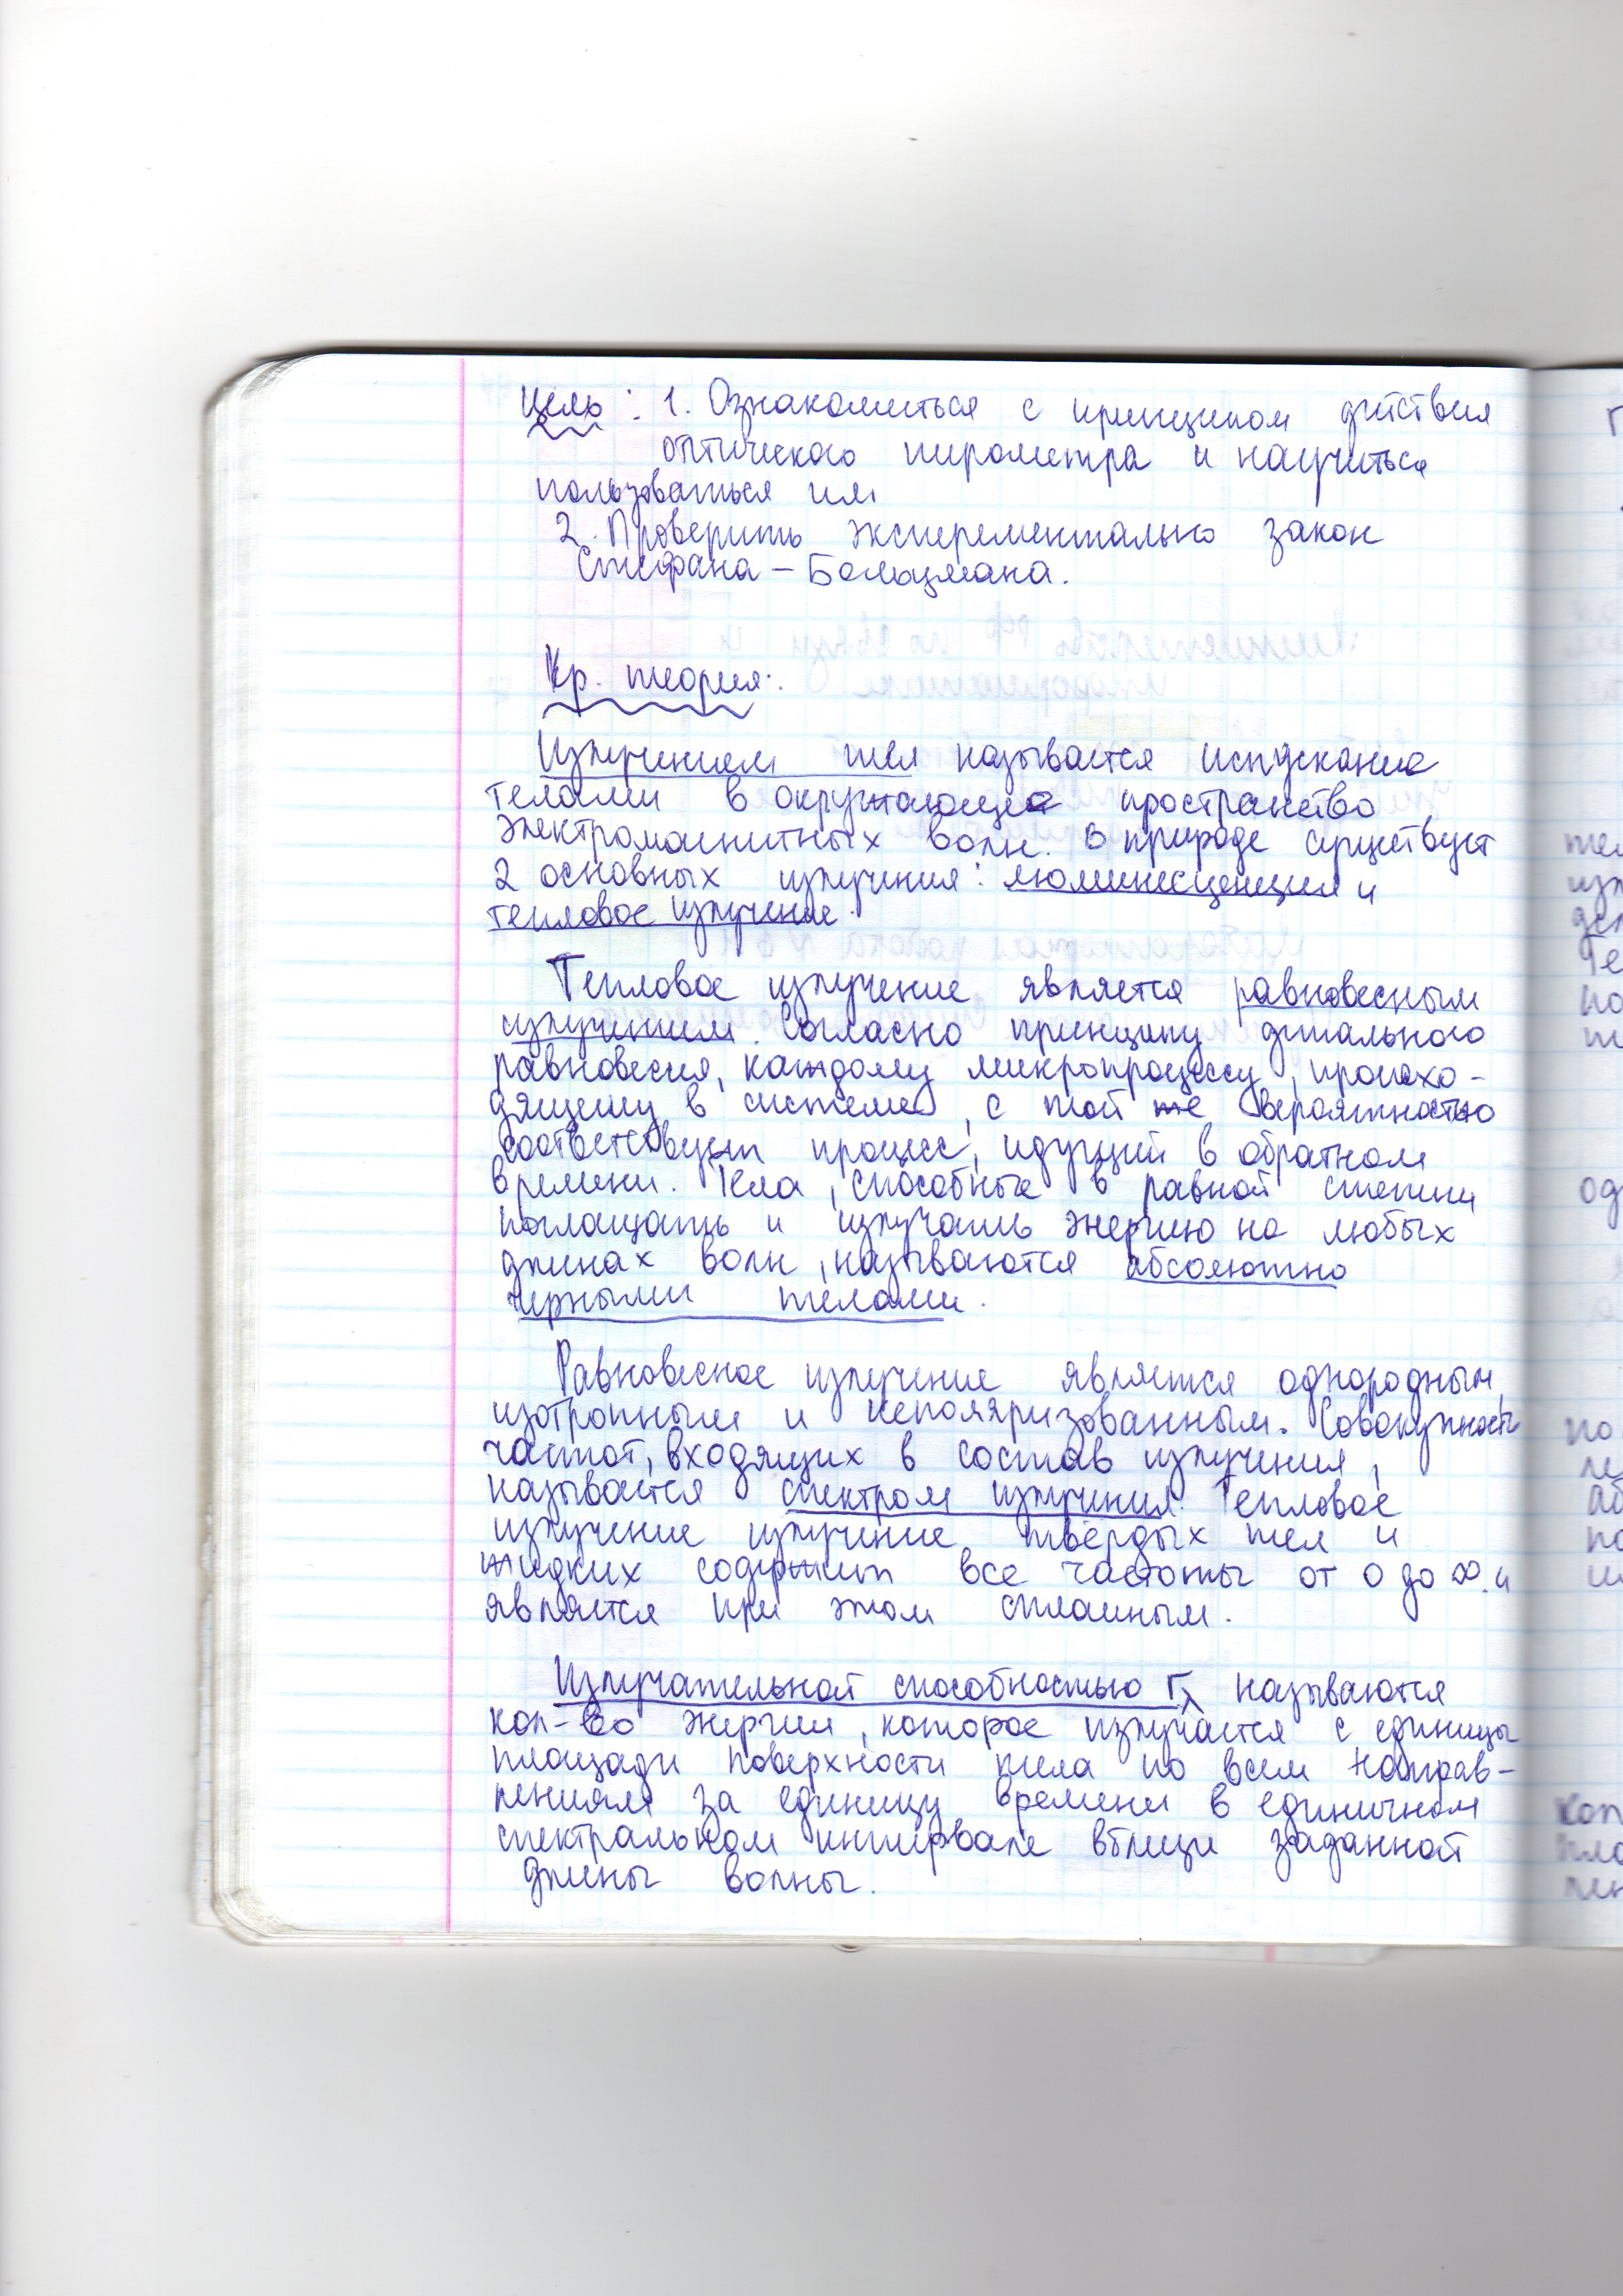 Цель: 1. Ознакомиться с принципом действия
оптического пирометра и научиться
пользоваться им
2. Проверить эксперементально закон
Стефана – Больцмана.
Кр. теория:
Излучением тел называется испускание
телами в окружающее пространство
электромагнитных волн. В природе существует
2 основных излучения: люминисценция и
тепловое излучение.
Тепловое излучение является равновесным
излучением. Согласно принципу детального
равновесия, каждому микропроцессу, происхо-
дящему в системе, с той же вероятностью
соответствует процесс, идущий в обратном
времени. Тела, способные в равной степени
поглощать и излучать энергию на любых
длинах волн, называются абсолютно
черными телами.
Равновесное излучение является однородным,
изотропным и неполяризованным. Совокупность
частот, входящих в состав излучения,
называется спектром излучения. Тепловое
излучение излучение твёрдых тел и
жидких содержит все частоты от 0 до ∞. и
является при этом сплошным.
Излучательной способностью r_λ называются
кол-во энергии, которое излучается с единицы
площади поверхности тела по всем направ-
лениям за единицу времени в единичном
спектральном интервале вблизи заданной
длины волны.